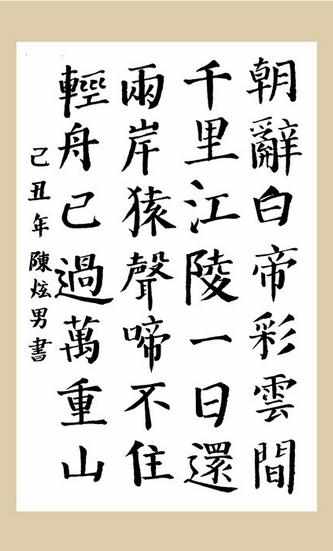 朝辭白帝彩雲間
千里江陵一日還
兩岸猿聲啼不住
輕舟已過萬重山
己丑年 陳炫男書